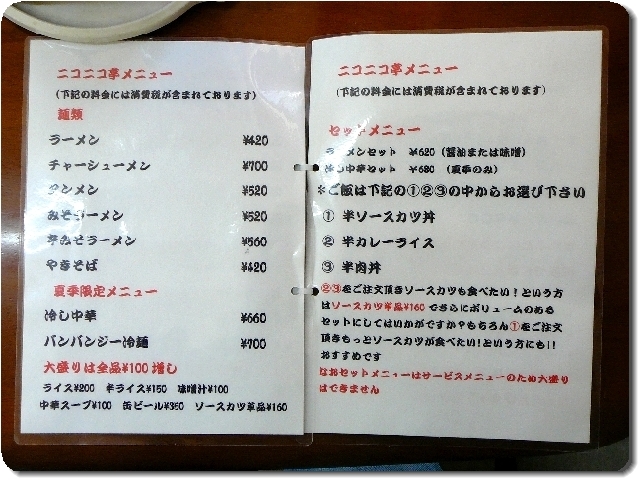 ニコニコ亭メニュー
(下記の料金には消費税が含まれております)
麺類
ラーメン ¥420
チャーシューメン ¥700
タンメン ¥520
みそラーメン ¥520
辛みそラーメン ¥560
やきそば ¥420
夏季限定メニュー
冷し中華 ¥660
バンバンジー冷麺 ¥700
大盛りは全品¥100増し
ライス¥200 半ライス¥150 味噌汁¥100
中華スープ¥100 缶ビール¥350 ソースカツ単品¥160
ニコニコ亭メニュー
(下記の料金には消費税が含まれております)
セットメニュー
ラーメンセット ¥620 (醤油または味噌)
冷し中華セット ¥680 (夏季のみ)
*ご飯は下記の①②③の中からお選び下さい
① 半ソースカツ丼
② 半カレーライス
③ 半肉丼
②③をご注文頂きソースカツも食べたい!という方
はソースカツ単品¥160でさらにボリュームのある
セットにしてはいかがですか?もちろん①をご注文
頂きもっとソースカツが食べたい!という方にも!!
おすすめです
なおセットメニューはサービスメニューのため大盛り
はできません